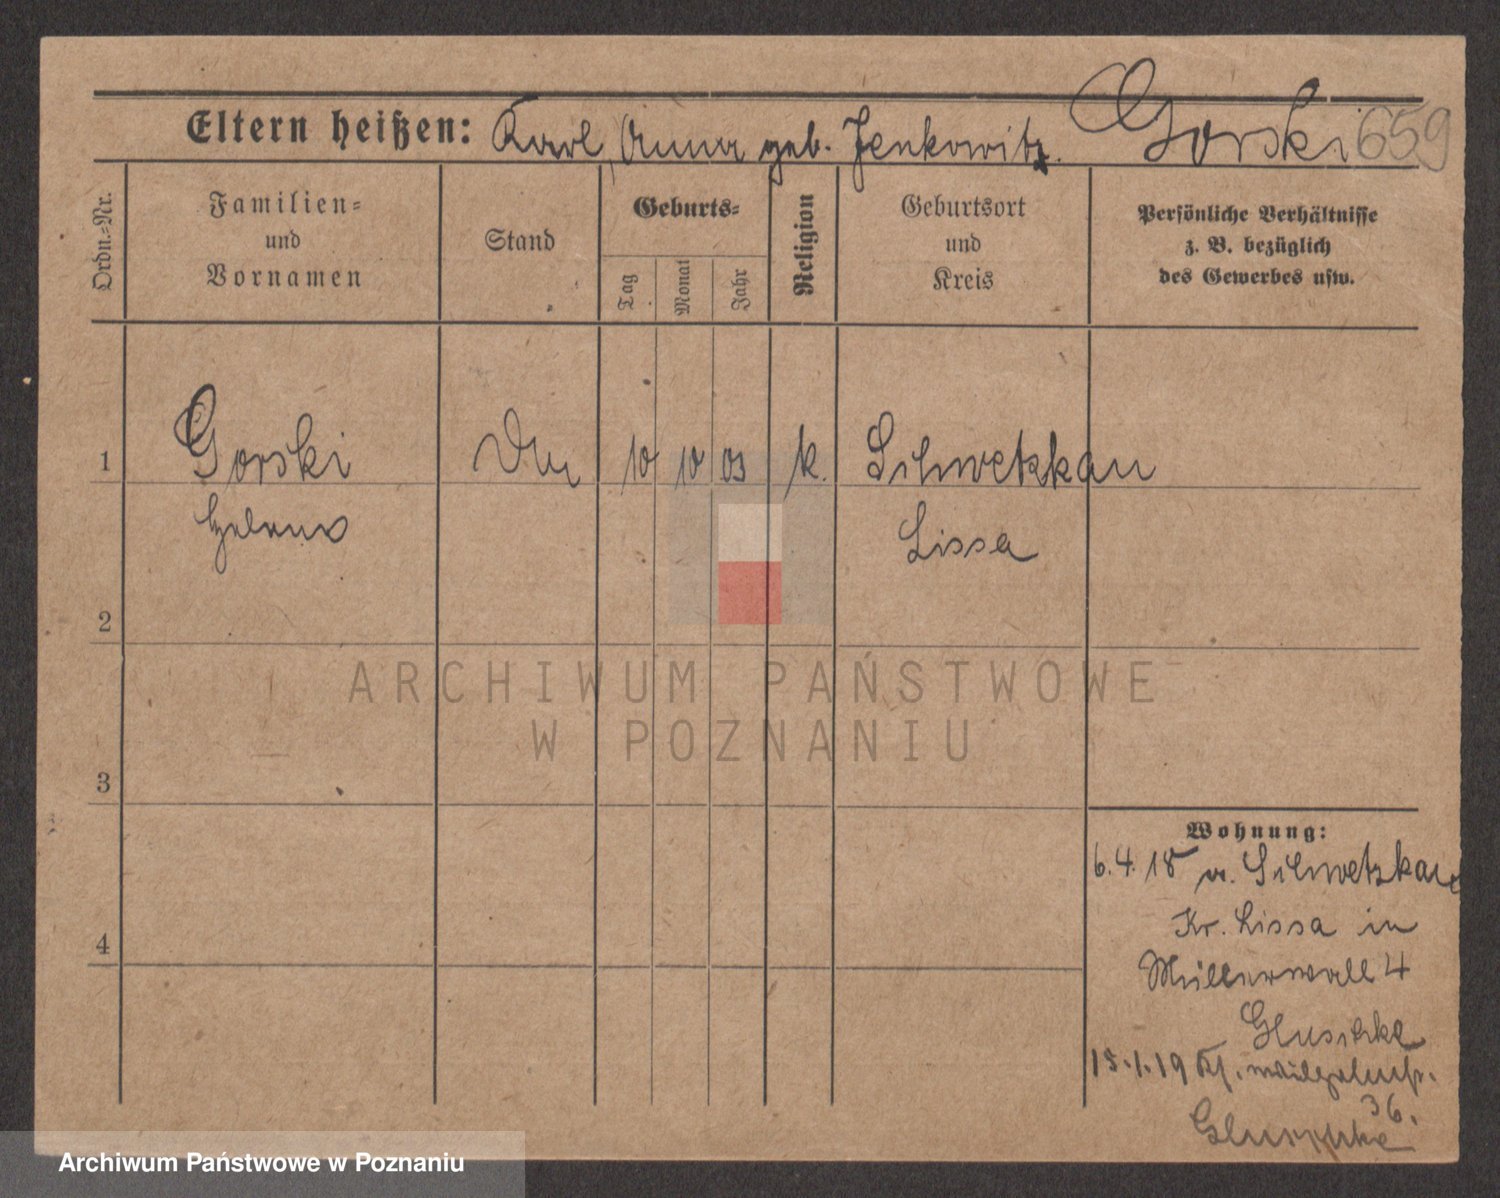 Eltern heißen: Karl, Anna geb. Jenkowitz. Gorski 659
Ordn.-Nr.
Familien=
und
Vornamen
Stand
Geburts=
Tag
Monat
Jahr
Religion
Geburtsort
und
Kreis
Persönliche Verhältnisse
z. B. bezüglich
des Gewerbes usw.
1 Gorski 10 10 03 k. Schwetzkau
Lissa
2
ARCHIWUM PAŃSTWOWE
W POZNANIU
3
Wohnung:
6.4.18 v. Schwetzkau
Kr. Lissa in
4
Müllerwall 4
Gluschke
15.1.19
36.
Archiwum Państwowe w Poznaniu